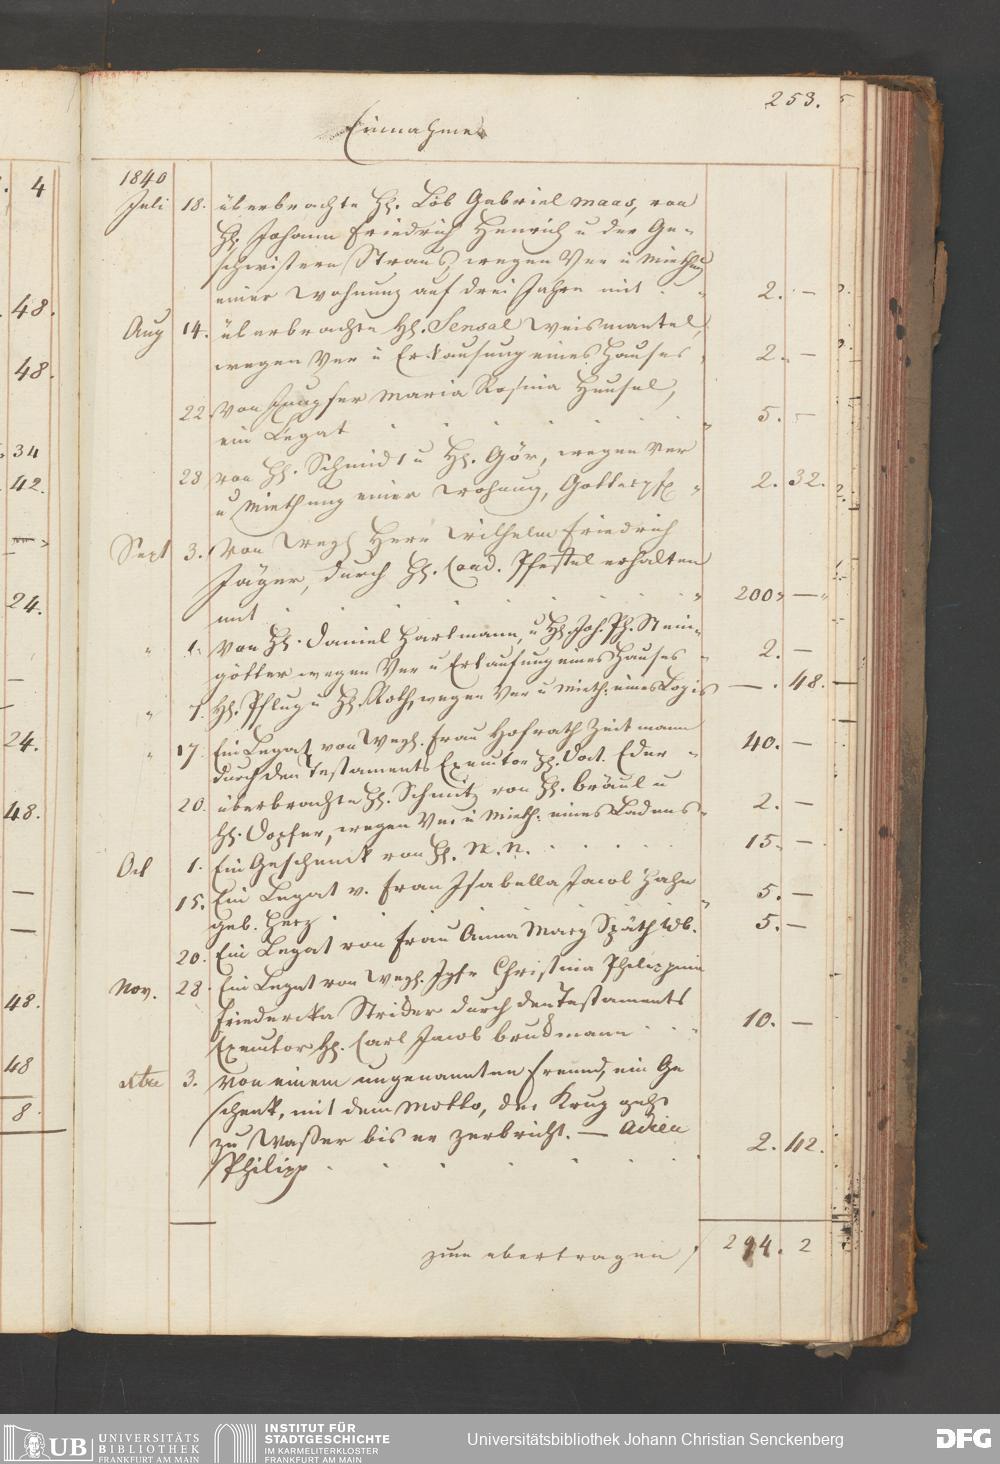 253.
Einnahme
1840
Juli 18. überbrachte Hh. Löb Gabriel Maas, von
Hh. Johann Friedrich Henrich u der Ge-
schwistern Straus, wegen Ver u Miethung
einer Wohnung auf drei Jahre mit 2. —
Aug 14. überbrachte Hh. Sensal Weismantel,
wegen Ver u Erkaufung eines Hauses 2. —
22 Von Jungfer Maria Rosina Hensel,
ein Legat 5. —
28 von Hh. Schmidt u Hh. Gör, wegen Ver
u Miethung einer Wohnung, 2. 32.
Sept 3. Von Herr Wilhelm Friedrich
Jäger, durch Hh. Cond. Pfestel erhalten
mit 200 —
" 1. Von Hh. Daniel Hartmann, u Hh. Joh. Ph. Stein-
götter wegen Ver u Erkaufung eines Hauses 2. —
" 7. Hh. Pflug u Hh. Roth, wegen Ver u Mieth: eines Logis —. 48.
" 17. Ein Legat von Frau Hofrath Zeitmann
durch den Testaments Executor Hh. Doct. Eder 40. —
20. überbrachte Hh. Schmitz von Hh. Bräul u
Hh. Dopfer, wegen Ver u Mieth: eines Ladens 2. —
Oct 1. Ein Geschenck von Hh. N. N. 15. —
15. Ein Legat v. Frau Isabella Jacob Hahn
geb. Herz 5. —
20. Ein Legat von Frau Anna Marg Späth Wb. 5. —
Nov. 28. Ein Legat von Jgfr Christina Philippina
Friedericka Strider durch den Testaments
Executor Hh. Carl Jacob Brukmann 10. —
3. Von einem ungenannten Freund, ein Ge
schenk, mit dem Motto, der Krug geht
zu Waßer bis er zerbricht. — Adieu
Philipp 2. 42.
zum übertragen 294. 2
4
48.
48.
34
42.
24.
24.
48.
48.
48
8.
UB UNIVERSITÄTS
BIBLIOTHEK
FRANKFURT AM MAIN
INSTITUT FÜR
STADTGESCHICHTE
IM KARMELITERKLOSTER
FRANKFURT AM MAIN
Universitätsbibliothek Johann Christian Senckenberg
DFG